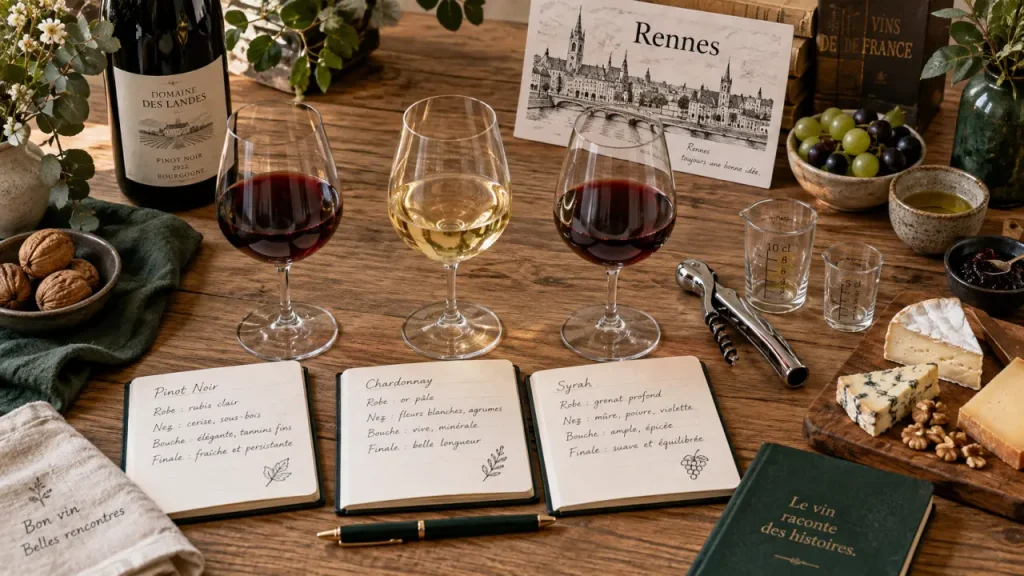 DOMAINE
DES LANDES
PINOT NOIR
2022
BOURGOGNE
Rennes
Rennes
toujours une bonne idée.
VINS
DE DE FRANCE
10 cl
Pinot Noir
Robe : rubis clair
Nez : cerise, sous-bois
Bouche : élégante, tannins fins
Finale : fraîche et persistante
Chardonnay
Robe : or pâle
Nez : fleurs blanches, agrumes
Bouche : vive, minérale
Finale : belle longueur
Syrah
Robe : grenat profond
Nez : mûre, poivre, violette
Bouche : ample, épicée
Finale : suave et équilibrée
Bon vin
Belles rencontres
Le vin
raconte
des histoires.